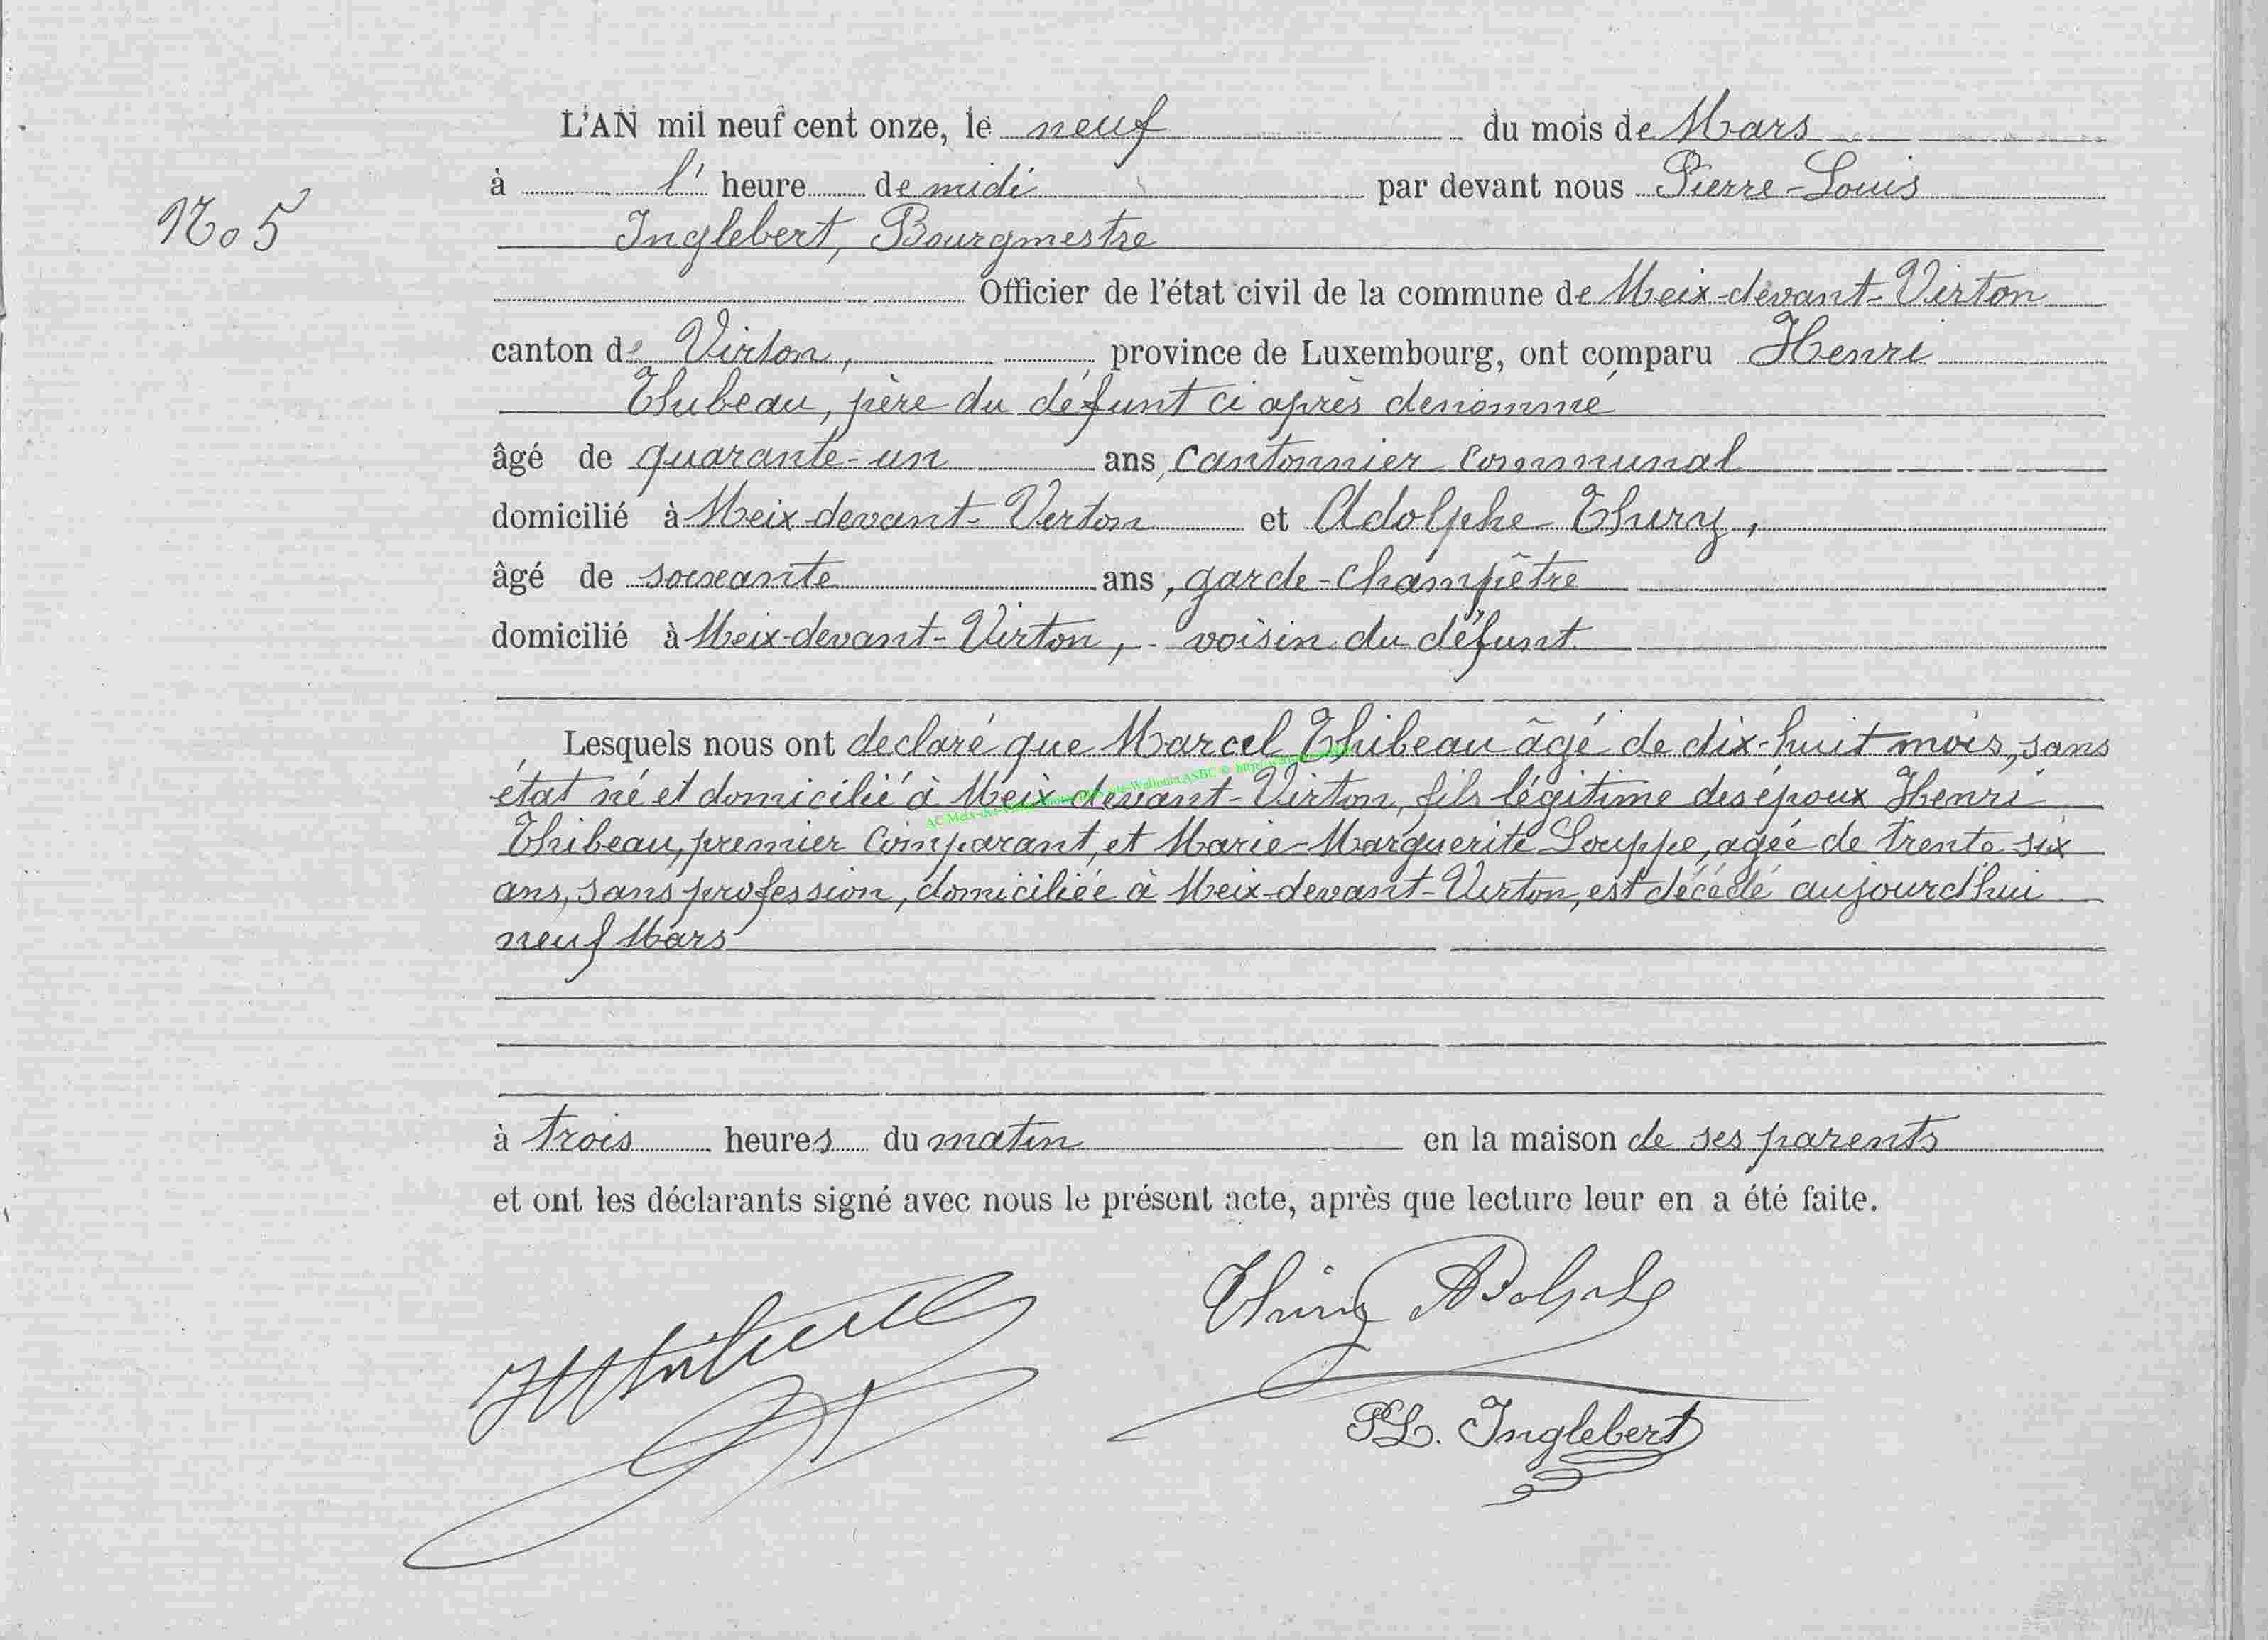 L'AN mil neuf cent onze, le neuf du mois de Mars
à l' heure de midi par devant nous Pierre-Louis
No 5
Inglebert, Bourgmestre
Officier de l'état civil de la commune de Meix-devant-Virton
canton de Virton, province de Luxembourg, ont comparu Henri
Thibeau, père du défunt ci après dénommé
âgé de quarante-un ans, cantonnier communal
domicilié à Meix-devant-Virton et Adolphe Thiry,
âgé de soixante ans, garde-champêtre
domicilié à Meix-devant-Virton, - voisin du défunt
Lesquels nous ont déclaré que Marcel Thibeau âgé de dix-huit mois, sans
état né et domicilié à Meix-devant-Virton, fils légitime des époux Henri
Thibeau, premier comparant, et Marie-Marguerite Louppe, agée de trente-six
ans, sans profession, domiciliée à Meix-devant-Virton, est décédé aujourd'hui
neuf Mars
à trois heures du matin en la maison de ses parents
et ont les déclarants signé avec nous le présent acte, après que lecture leur en a été faite.
Thiry Adolphe
PL. Inglebert